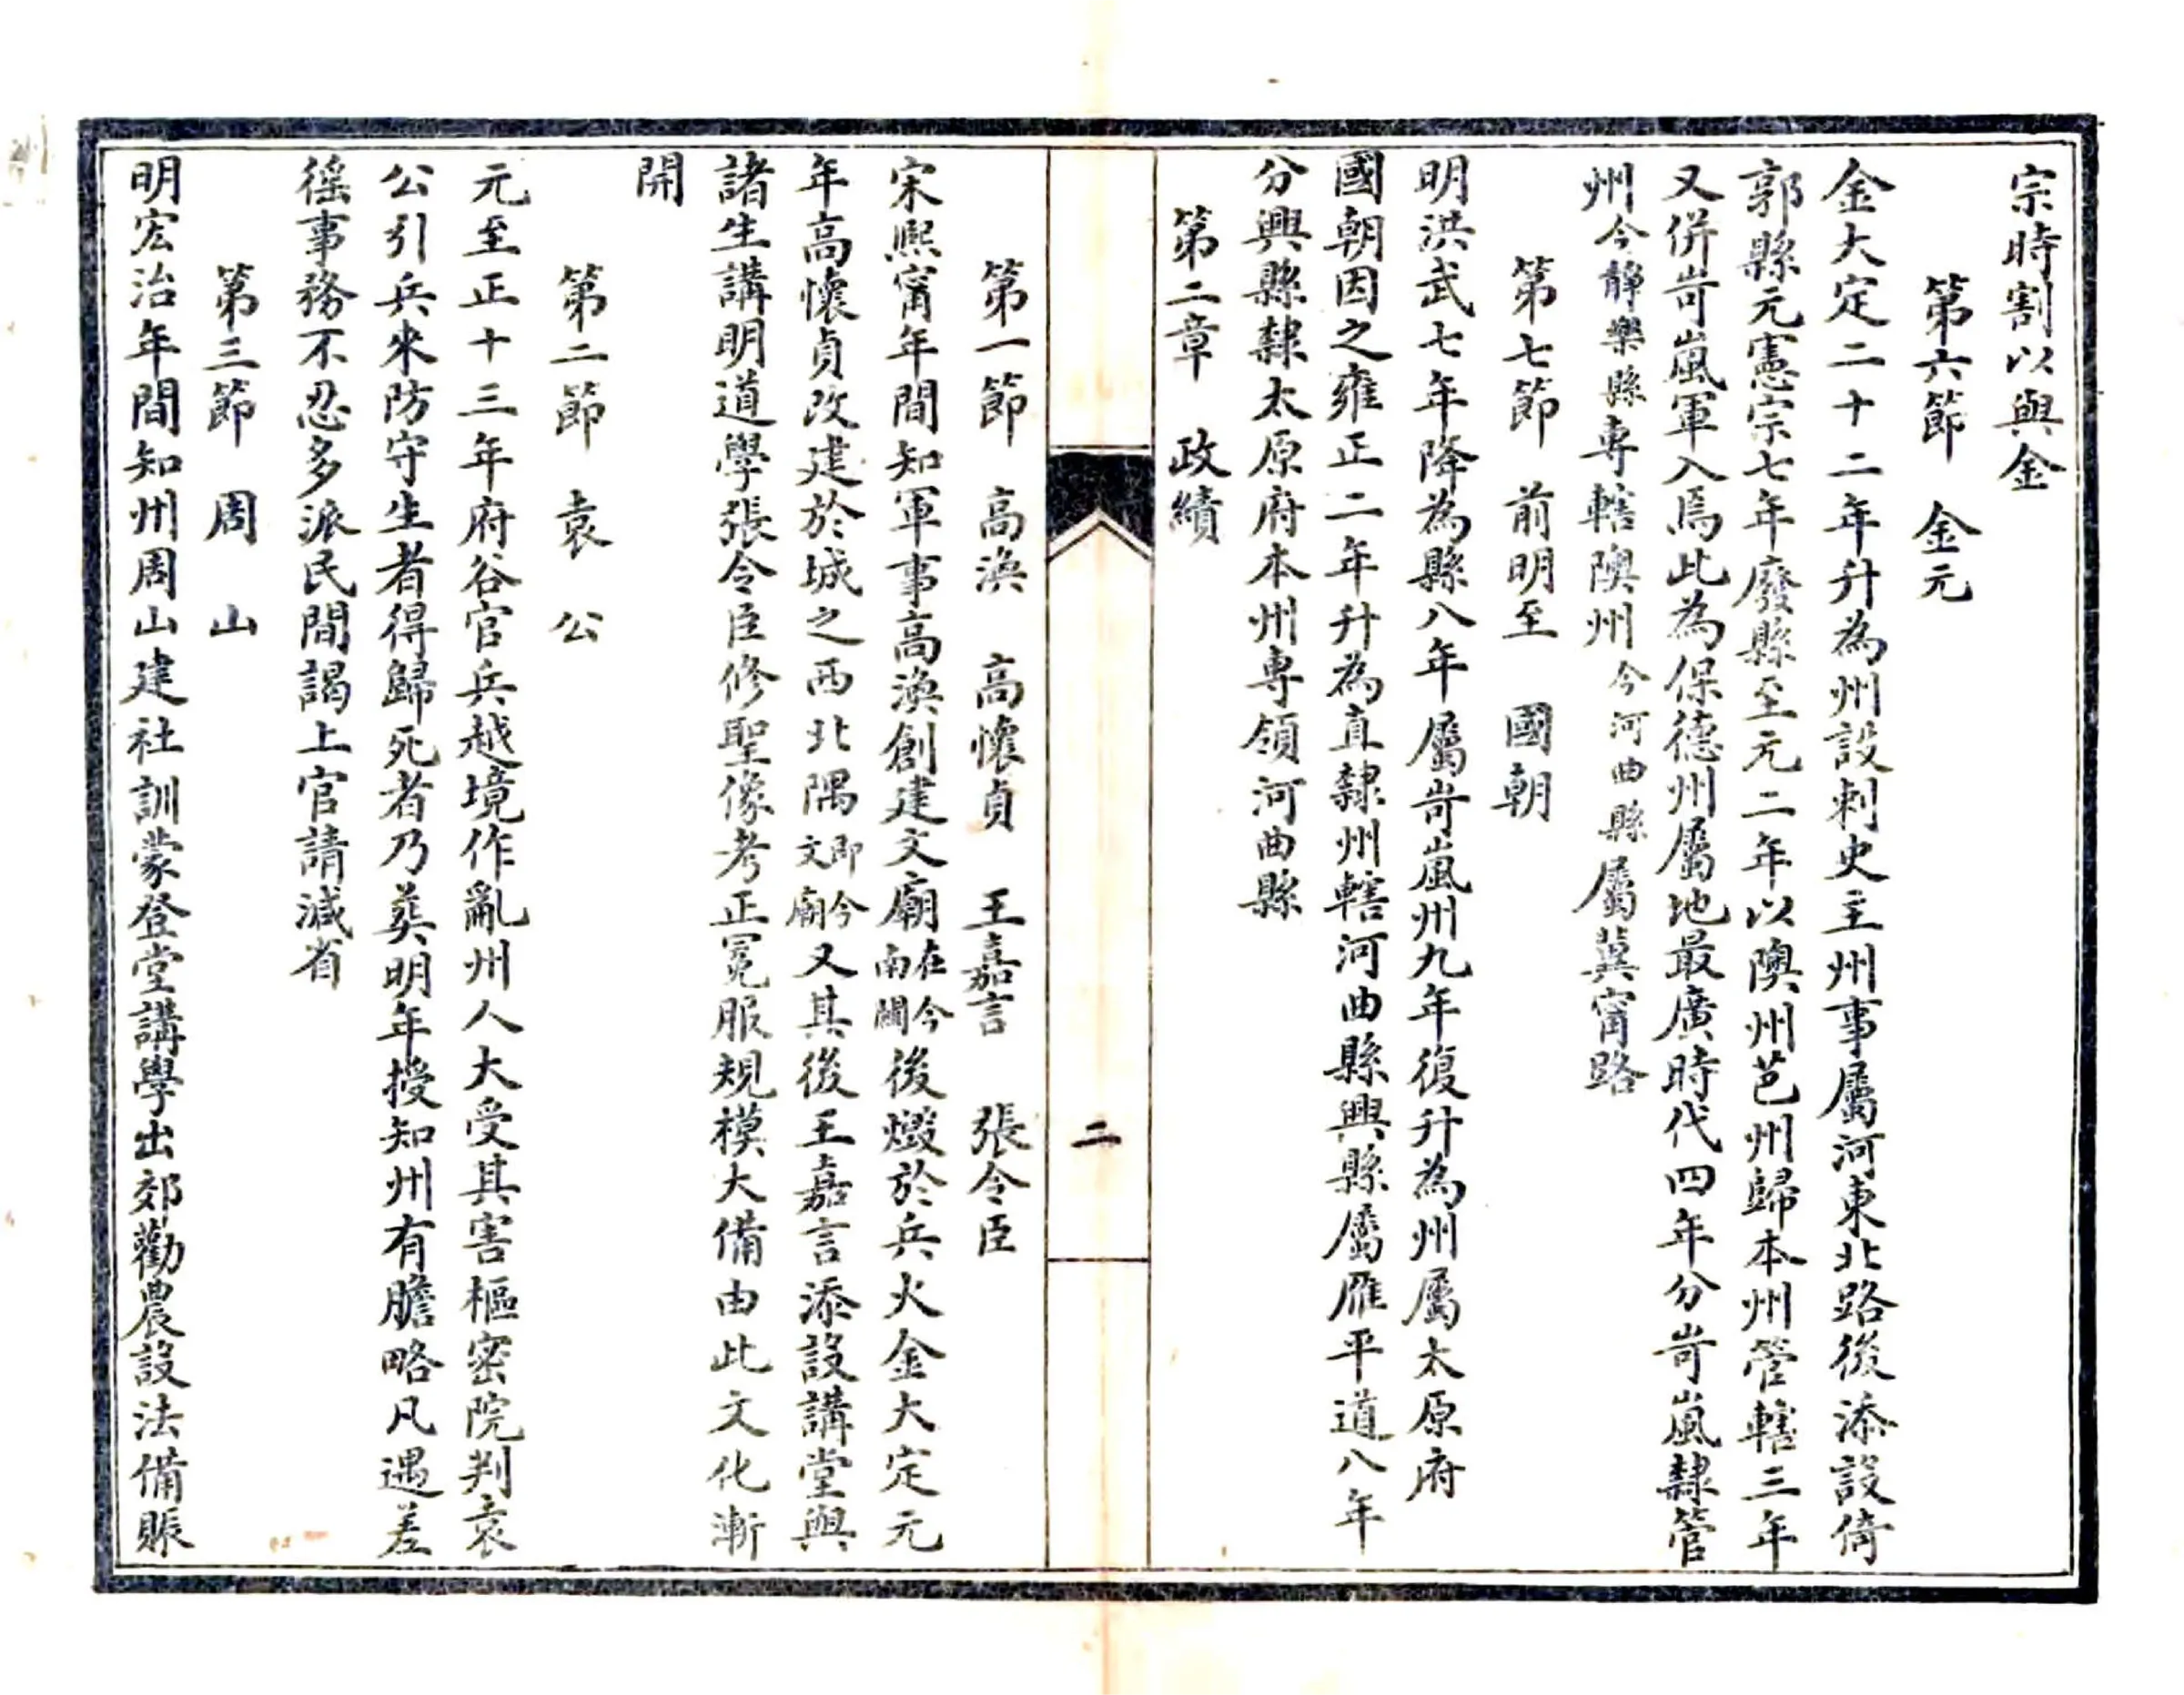 宗時割以與金
第六節　金元
金大定二十二年升為州設刺史主州事屬河東北路後添設倚
郭縣元憲宗七年廢縣至元二年以隩州芭州歸本州管轄三年
又併岢嵐軍入焉此為保德州屬地最廣時代四年分岢嵐隸管
州今靜樂縣専轄隩州今河曲縣屬冀甯路
第七節　前明至　國朝
明洪武七年降為縣八年屬岢嵐州九年復升為州屬太原府
國朝因之雍正二年升為直隸州轄河曲縣興縣屬雁平道八年
分興縣隸太原府本州専領河曲縣
第二章　政績
二
第一節　高渙　高懷貞　王嘉言　張令臣
宋熙甯年間知軍事高渙創建文廟在今南關後燬於兵火金大定元
年高懷貞改建於城之西北隅即今文廟又其後王嘉言添設講堂與
諸生講明道學張令臣修聖像考正冕服規模大備由此文化漸
開
第二節　袁公
元至正十三年府谷官兵越境作亂州人大受其害樞密院判袁
公引兵來防守生者得歸死者乃葬明年授知州有膽略凡遇差
徭事務不忍多派民間謁上官請減省
第三節　周山
明宏治年間知州周山建社訓蒙登堂講學出郊勸農設法備賑